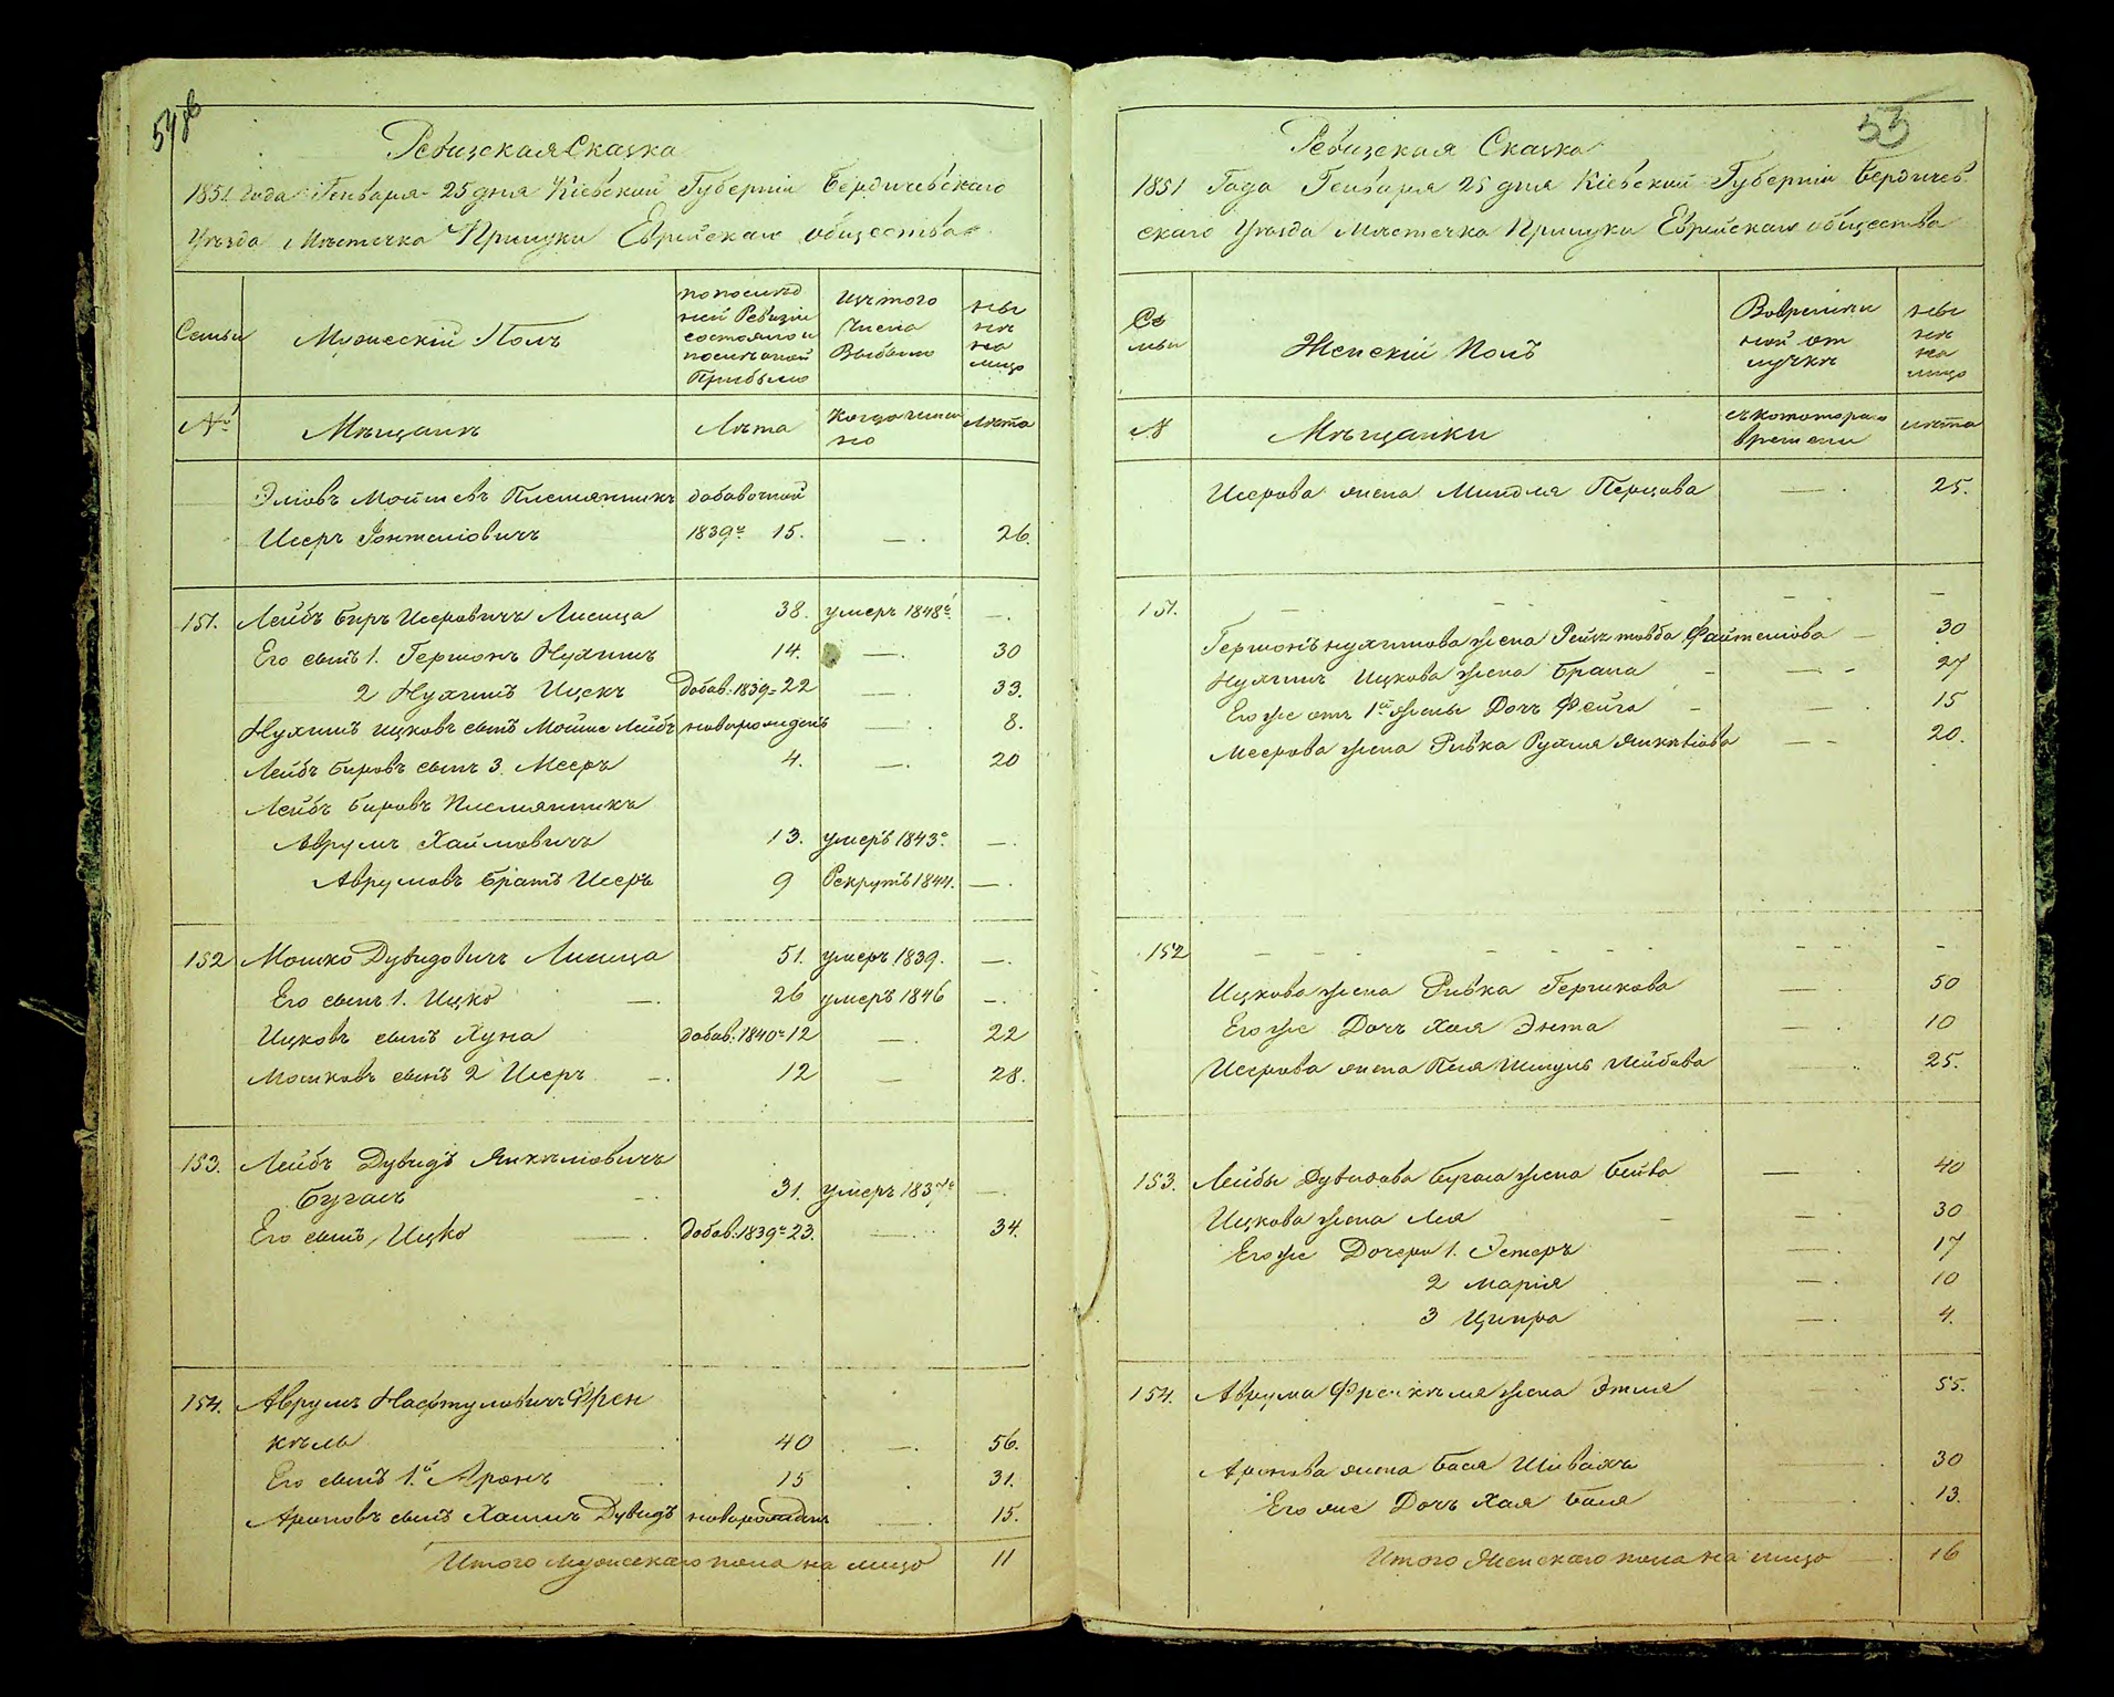 54об
Ревизская Сказка
1851 года Генваря 25 дня Кіевской Губерніи Бердичевскаго
Уѣзда Мѣстечка Прилуки Еврейскаго общества
Семьи
Мужескій Полъ
по послѣд
ней Ревизіи
состояло и
послѣ оной
Прибыло
Изъ того
Числа
Выбыло
ны
нѣ
на
лицо
№
Мѣщанъ
Лѣта
Когда имен
но
Лѣта
Эліовъ Мошкевъ Племянникъ добавочной
Исеръ Іонтеліовичъ 1839г 15. — 26.
151. Лейбъ Беръ Исеровичъ Лисица 38. умеръ 1848г —.
Его сынъ 1. Гершонъ Нухимъ 14. — 30
2 Нухимъ Ицекъ Добав. 1839г 22 — 33.
Нухимъ Ицковъ сынъ Мойше Лейбъ новорожденъ — 8.
Лейбъ Беровъ сынъ 3. Мееръ 4. — 20
Лейбъ Беровъ Племянникъ
Аврумъ Хаимовичъ 13. умеръ 1843г —.
Аврумовъ братъ Исеръ 9 Рекрутъ 1844. —.
152 Мошко Дувидовичъ Лисица 51. умеръ 1839. —.
Его сынъ 1. Ицко — 26 умеръ 1846 —.
Ицковъ сынъ Хуна добав. 1840г 12 — 22
Мошковъ сынъ 2 Исеръ — 12 — 28.
153. Лейбъ Дувидъ Янкеліовичъ
Бугасъ — 31. умеръ 1837г —.
Его сынъ Ицко — добав. 1839г 23. — 34.
154. Аврумъ Нафтуловичъ Френ
кель 40 — 56.
Его сынъ 1.й Аронъ 15 31.
Ароновъ сынъ Хаимъ Дувидъ новорожденъ — 15.
Итого мужескаго пола на лицо 11
55
Ревизская Сказка
1851 Года Генваря 25 дня Кіевской Губерніи Бердичев
скаго Уѣзда Мѣстечка Прилуки Еврейскаго общества
Се
мьи
Женскій Полъ
Во времен
ной от
лучкѣ
ны
нѣ
на
лицо
№
Мѣщанки
съ котораго
времени
лѣта
Исерова жена Миндля Перцова — 25.
151. — — — — — —
Гершонъ Нухимова жена Рейзъ товба Файтеліова — 30
Нухимъ Ицкова жена Брана — 27
Его же отъ 1й жены Дочъ Фейга — 15
Меерова жена Ривка Рухля Янкеліова — 20.
152 — — — — — —
Ицкова жена Ривка Гершкова — 50
Его же Дочъ Хая Энта — 10
Исерова жена Песя Лейбова — 25.
153. Лейбы Дувидова Бугаса жена Бейла — 40
Ицкова жена Лея — 30
Его же Дочери 1. Эстеръ — 17
2 Марія — 10
3 Ципра — 4.
154. Аврума Френкеля жена Этля — 55.
Аронова жена Бася — 30
Его же Дочъ Хая Бася — 13.
Итого Женскаго пола на лицо — 16